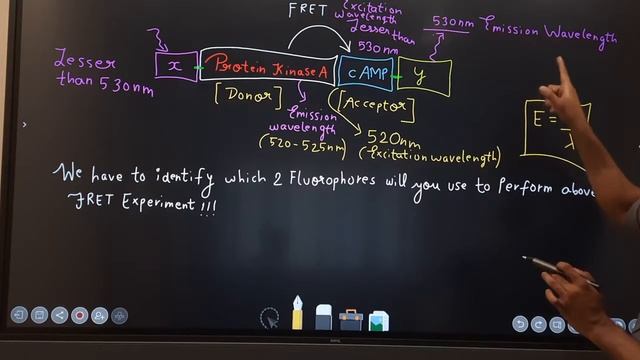 FRET
Excitation
wavelength
Lesser than
530nm
530nm Emission Wavelength
Lesser
than 530nm
x
Protein Kinase A
cAMP
y
[Donor]
[Acceptor]
Emission
wavelength
(520-525nm)
520nm
(Excitation wavelength)
E =
λ
We have to identify which 2 Fluorophores will you use to Perform above
FRET Experiment!!!